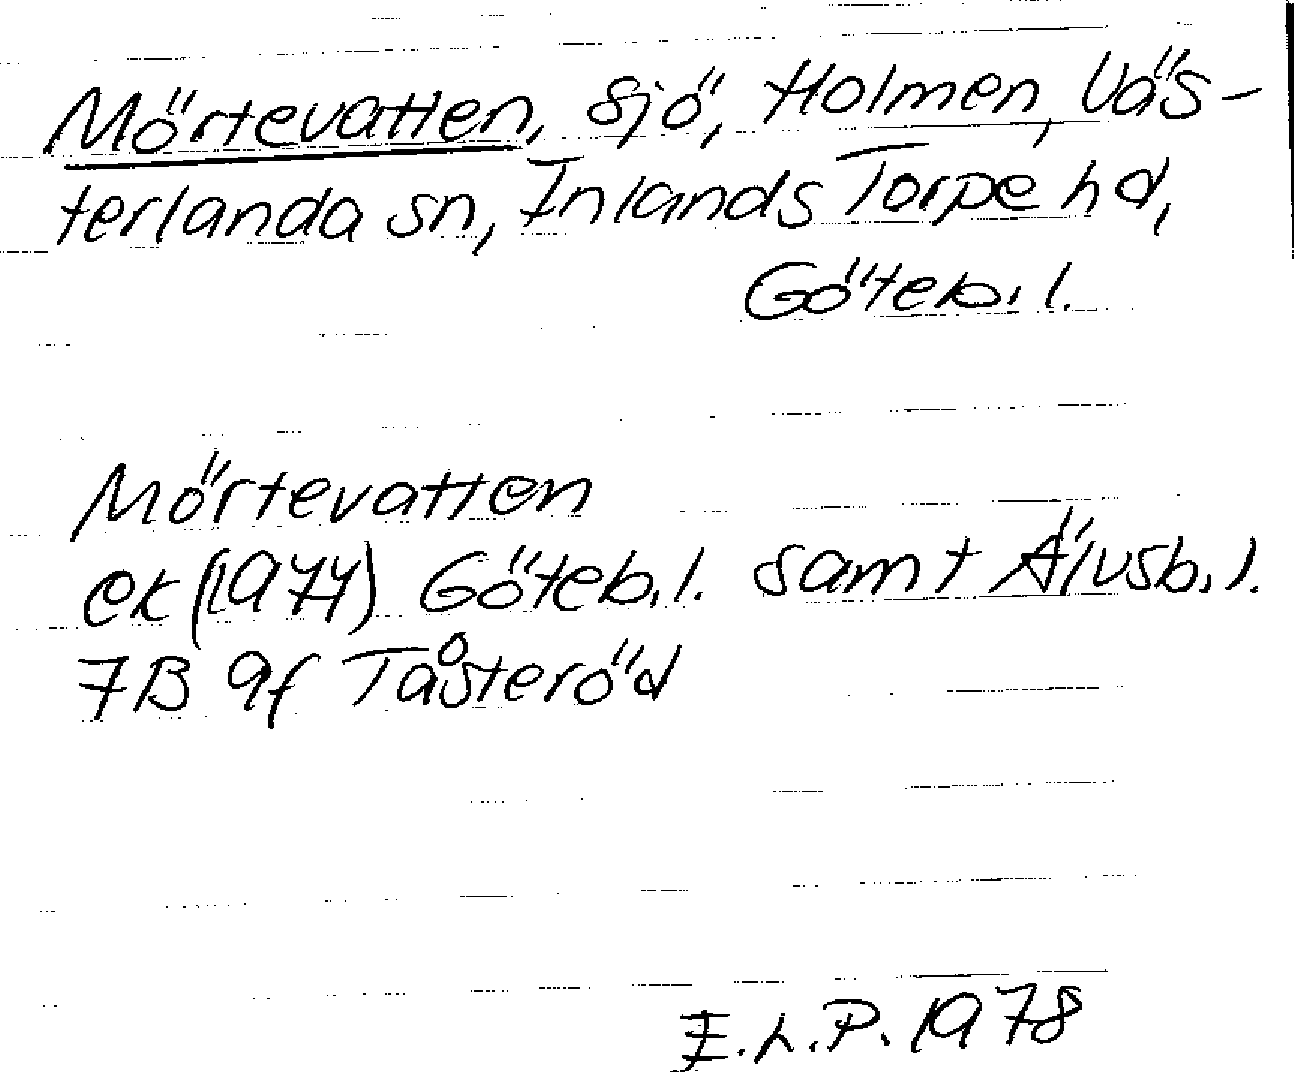 Mörtevatten, sjö, Holmen, Väs-
terlanda sn, Inlands Torpe hd,
Göteb. l.
Mörtevatten
ek (1977) Göteb. l. samt Älvsb. l.
7B 9f Tåsteröd
E.L.P. 1978